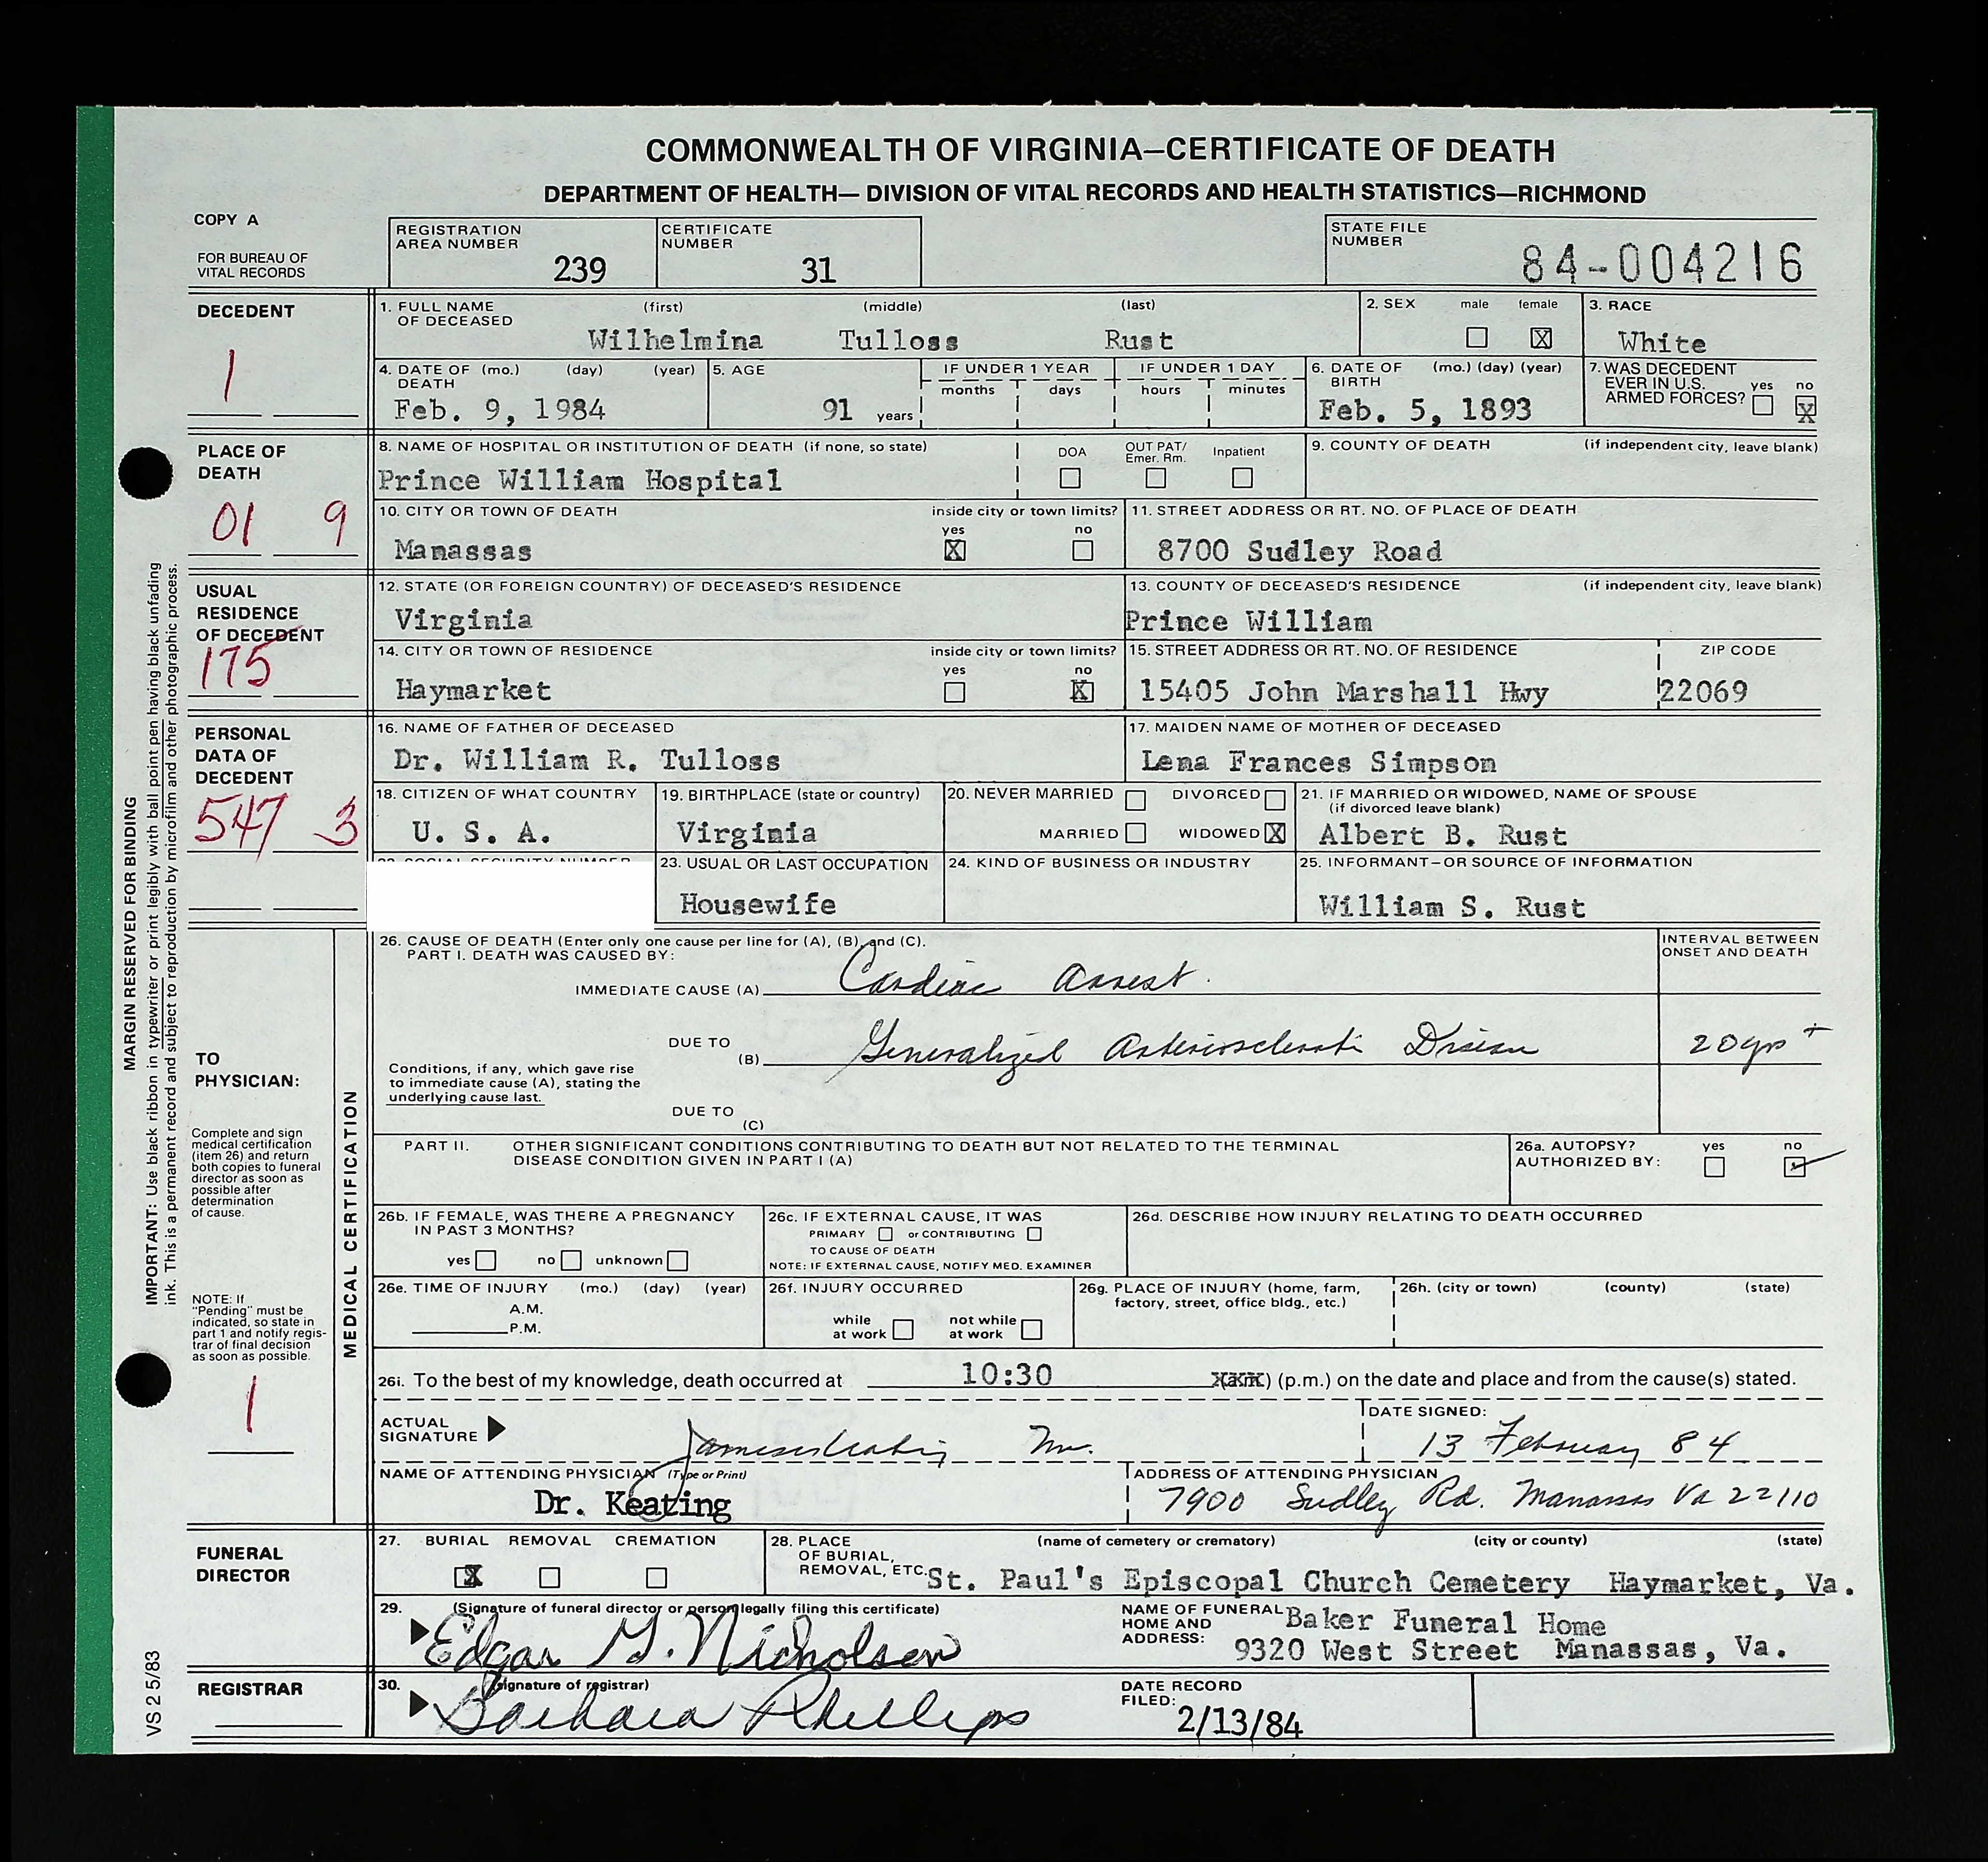 COMMONWEALTH OF VIRGINIA—CERTIFICATE OF DEATH
DEPARTMENT OF HEALTH— DIVISION OF VITAL RECORDS AND HEALTH STATISTICS—RICHMOND
COPY A
FOR BUREAU OF
VITAL RECORDS
REGISTRATION
AREA NUMBER
239
CERTIFICATE
NUMBER
31
STATE FILE
NUMBER
84-004216
DECEDENT
1
1. FULL NAME
OF DECEASED
(first) (middle) (last)
Wilhelmina Tulloss Rust
2. SEX male female
X
3. RACE
White
4. DATE OF (mo.) (day) (year)
DEATH
Feb. 9, 1984
5. AGE
91 years
IF UNDER 1 YEAR
months days
IF UNDER 1 DAY
hours minutes
6. DATE OF (mo.) (day) (year)
BIRTH
Feb. 5, 1893
7. WAS DECEDENT
EVER IN U.S.
ARMED FORCES?
yes no
X
PLACE OF
DEATH
01 9
8. NAME OF HOSPITAL OR INSTITUTION OF DEATH (if none, so state)
Prince William Hospital
DOA
OUT PAT/
Emer. Rm.
Inpatient
9. COUNTY OF DEATH (if independent city, leave blank)
10. CITY OR TOWN OF DEATH
Manassas
inside city or town limits?
yes no
X
11. STREET ADDRESS OR RT. NO. OF PLACE OF DEATH
8700 Sudley Road
USUAL
RESIDENCE
OF DECEDENT
175
12. STATE (OR FOREIGN COUNTRY) OF DECEASED'S RESIDENCE
Virginia
13. COUNTY OF DECEASED'S RESIDENCE (if independent city, leave blank)
Prince William
14. CITY OR TOWN OF RESIDENCE
Haymarket
inside city or town limits?
yes no
X
15. STREET ADDRESS OR RT. NO. OF RESIDENCE
15405 John Marshall Hwy
ZIP CODE
22069
PERSONAL
DATA OF
DECEDENT
547 3
16. NAME OF FATHER OF DECEASED
Dr. William R. Tulloss
17. MAIDEN NAME OF MOTHER OF DECEASED
Lena Frances Simpson
18. CITIZEN OF WHAT COUNTRY
U. S. A.
19. BIRTHPLACE (state or country)
Virginia
20. NEVER MARRIED DIVORCED
MARRIED WIDOWED X
21. IF MARRIED OR WIDOWED, NAME OF SPOUSE
(if divorced leave blank)
Albert B. Rust
23. USUAL OR LAST OCCUPATION
Housewife
24. KIND OF BUSINESS OR INDUSTRY
25. INFORMANT—OR SOURCE OF INFORMATION
William S. Rust
MARGIN RESERVED FOR BINDING
IMPORTANT: Use black ribbon in typewriter or print legibly with ball point pen having black unfading
ink. This is a permanent record and subject to reproduction by microfilm and other photographic process.
TO
PHYSICIAN:
Complete and sign
medical certification
(item 26) and return
both copies to funeral
director as soon as
possible after
determination
of cause.
NOTE: If
"Pending" must be
indicated, so state in
part 1 and notify regis-
trar of final decision
as soon as possible.
1
MEDICAL CERTIFICATION
26. CAUSE OF DEATH (Enter only one cause per line for (A), (B), and (C).
PART I. DEATH WAS CAUSED BY:
INTERVAL BETWEEN
ONSET AND DEATH
IMMEDIATE CAUSE (A) Cardiac arrest.
DUE TO
(B) Generalized Arteriosclerotic Disease
20 yrs +
Conditions, if any, which gave rise
to immediate cause (A), stating the
underlying cause last.
DUE TO
(C)
PART II. OTHER SIGNIFICANT CONDITIONS CONTRIBUTING TO DEATH BUT NOT RELATED TO THE TERMINAL
DISEASE CONDITION GIVEN IN PART I (A)
26a. AUTOPSY?
AUTHORIZED BY:
yes no
26b. IF FEMALE, WAS THERE A PREGNANCY
IN PAST 3 MONTHS?
yes no unknown
26c. IF EXTERNAL CAUSE, IT WAS
PRIMARY or CONTRIBUTING
TO CAUSE OF DEATH
NOTE: IF EXTERNAL CAUSE, NOTIFY MED. EXAMINER
26d. DESCRIBE HOW INJURY RELATING TO DEATH OCCURRED
26e. TIME OF INJURY (mo.) (day) (year)
A.M.
P.M.
26f. INJURY OCCURRED
while
at work
not while
at work
26g. PLACE OF INJURY (home, farm,
factory, street, office bldg., etc.)
26h. (city or town) (county) (state)
26i. To the best of my knowledge, death occurred at 10:30 (p.m.) on the date and place and from the cause(s) stated.
ACTUAL
SIGNATURE
DATE SIGNED:
13 February 84
NAME OF ATTENDING PHYSICIAN (Type or Print)
Dr. Keating
ADDRESS OF ATTENDING PHYSICIAN
7900 Sudley Rd. Manassas Va 22110
FUNERAL
DIRECTOR
27. BURIAL REMOVAL CREMATION
X
28. PLACE
OF BURIAL,
REMOVAL, ETC.
(name of cemetery or crematory) (city or county) (state)
St. Paul's Episcopal Church Cemetery Haymarket, Va.
29. (Signature of funeral director or person legally filing this certificate)
Edgar G. Nicholsen
NAME OF FUNERAL
HOME AND
ADDRESS:
Baker Funeral Home
9320 West Street Manassas, Va.
REGISTRAR
30. (Signature of registrar)
Barbara Phillips
DATE RECORD
FILED:
2/13/84
VS 2 5/83